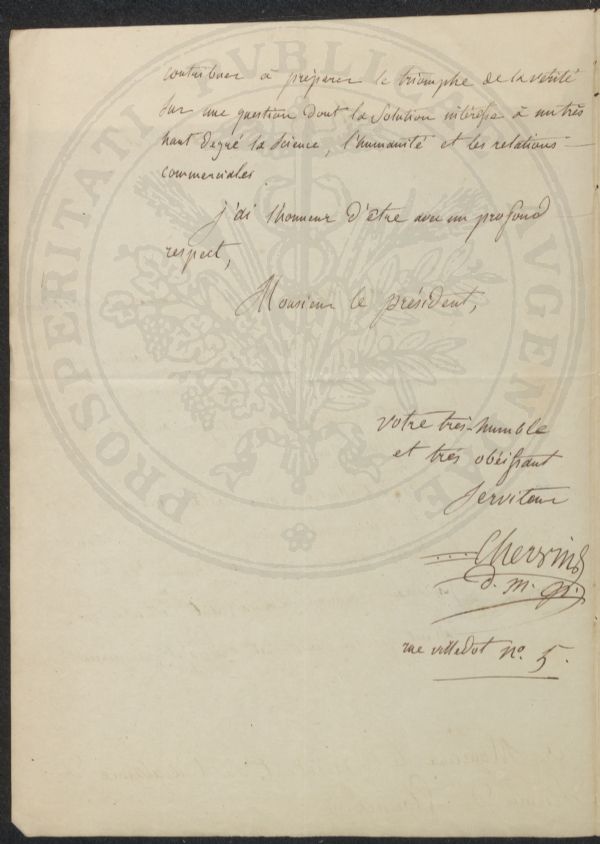 contribuer à préparer le triomphe de la vérité
sur une question dont la Solution intéresse à un très
haut degré la Science, l'humanité et les relations
commerciales
j'ai l'honneur d'être avec un profond
respect,
Monsieur le président,
votre très-humble
et très obéissant
Serviteur
Chervin
d. m. p.
rue villedot nº. 5.
PROSPERITATI PVBLICAE AVGENDAE